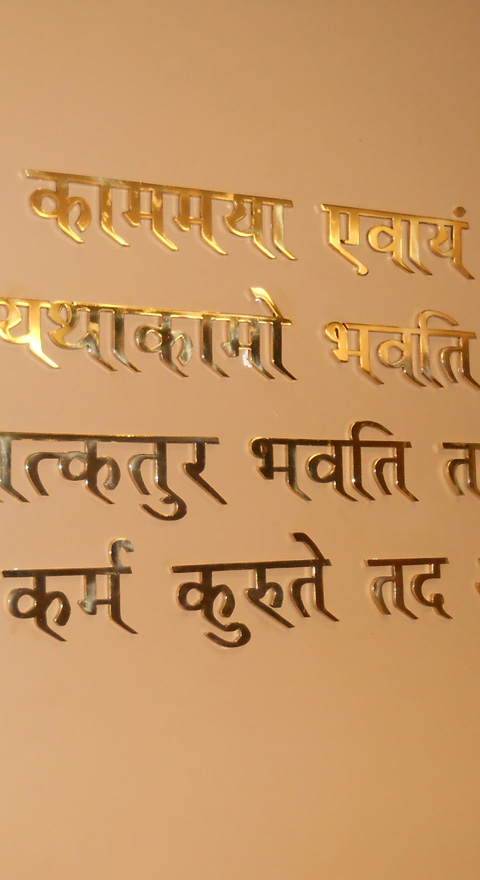 काममया एवायं
यथाकामो भवति
त्कतुर भवति
कर्म कुरुते तद